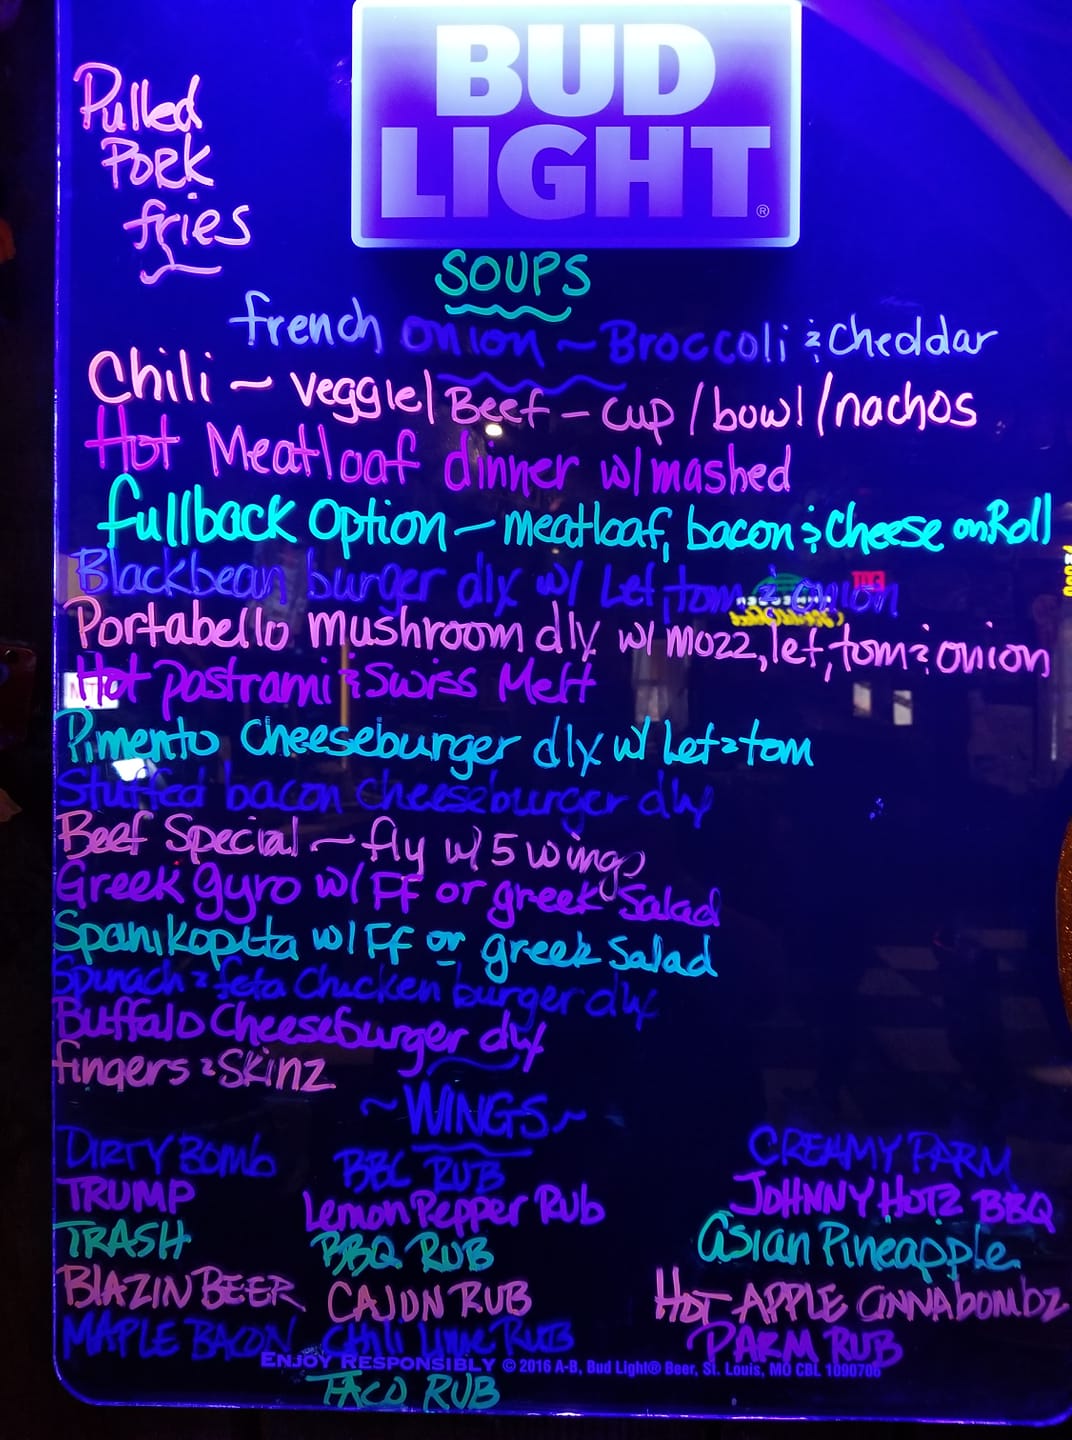 BUD
LIGHT®
Pulled
Pork
fries
SOUPS
french onion ~ Broccoli & Cheddar
Chili ~ veggie/Beef - cup/bowl/nachos
Hot Meatloaf dinner w/ mashed
fullback Option - meatloaf, bacon & Cheese on Roll
Blackbean burger dlx w/ Let, tom & onion
Portabello mushroom dlx w/ mozz, let, tom & onion
Hot pastrami & Swiss Melt
Pimento Cheeseburger dlx w/ Let & tom
Stuffed bacon cheeseburger dlx
Beef Special - fly w/ 5 wings
Greek gyro w/ Ff or greek Salad
Spanikopita w/ Ff or greek Salad
Spinach & feta Chicken burger dlx
Buffalo Cheeseburger dlx
fingers & Skinz
~WINGS~
DIRTY BOMB BBC RUB CREAMY PARM
TRUMP Lemon Pepper Rub JOHNNY HOTZ BBQ
TRASH BBQ RUB Asian Pineapple
BLAZIN BEER CAJUN RUB HOT APPLE CINNAbombz
MAPLE BACON Chili Lime RUB PARM RUB
ENJOY RESPONSIBLY © 2016 A-B, Bud Light® Beer, St. Louis, MO CBL 1090706
TACO RUB